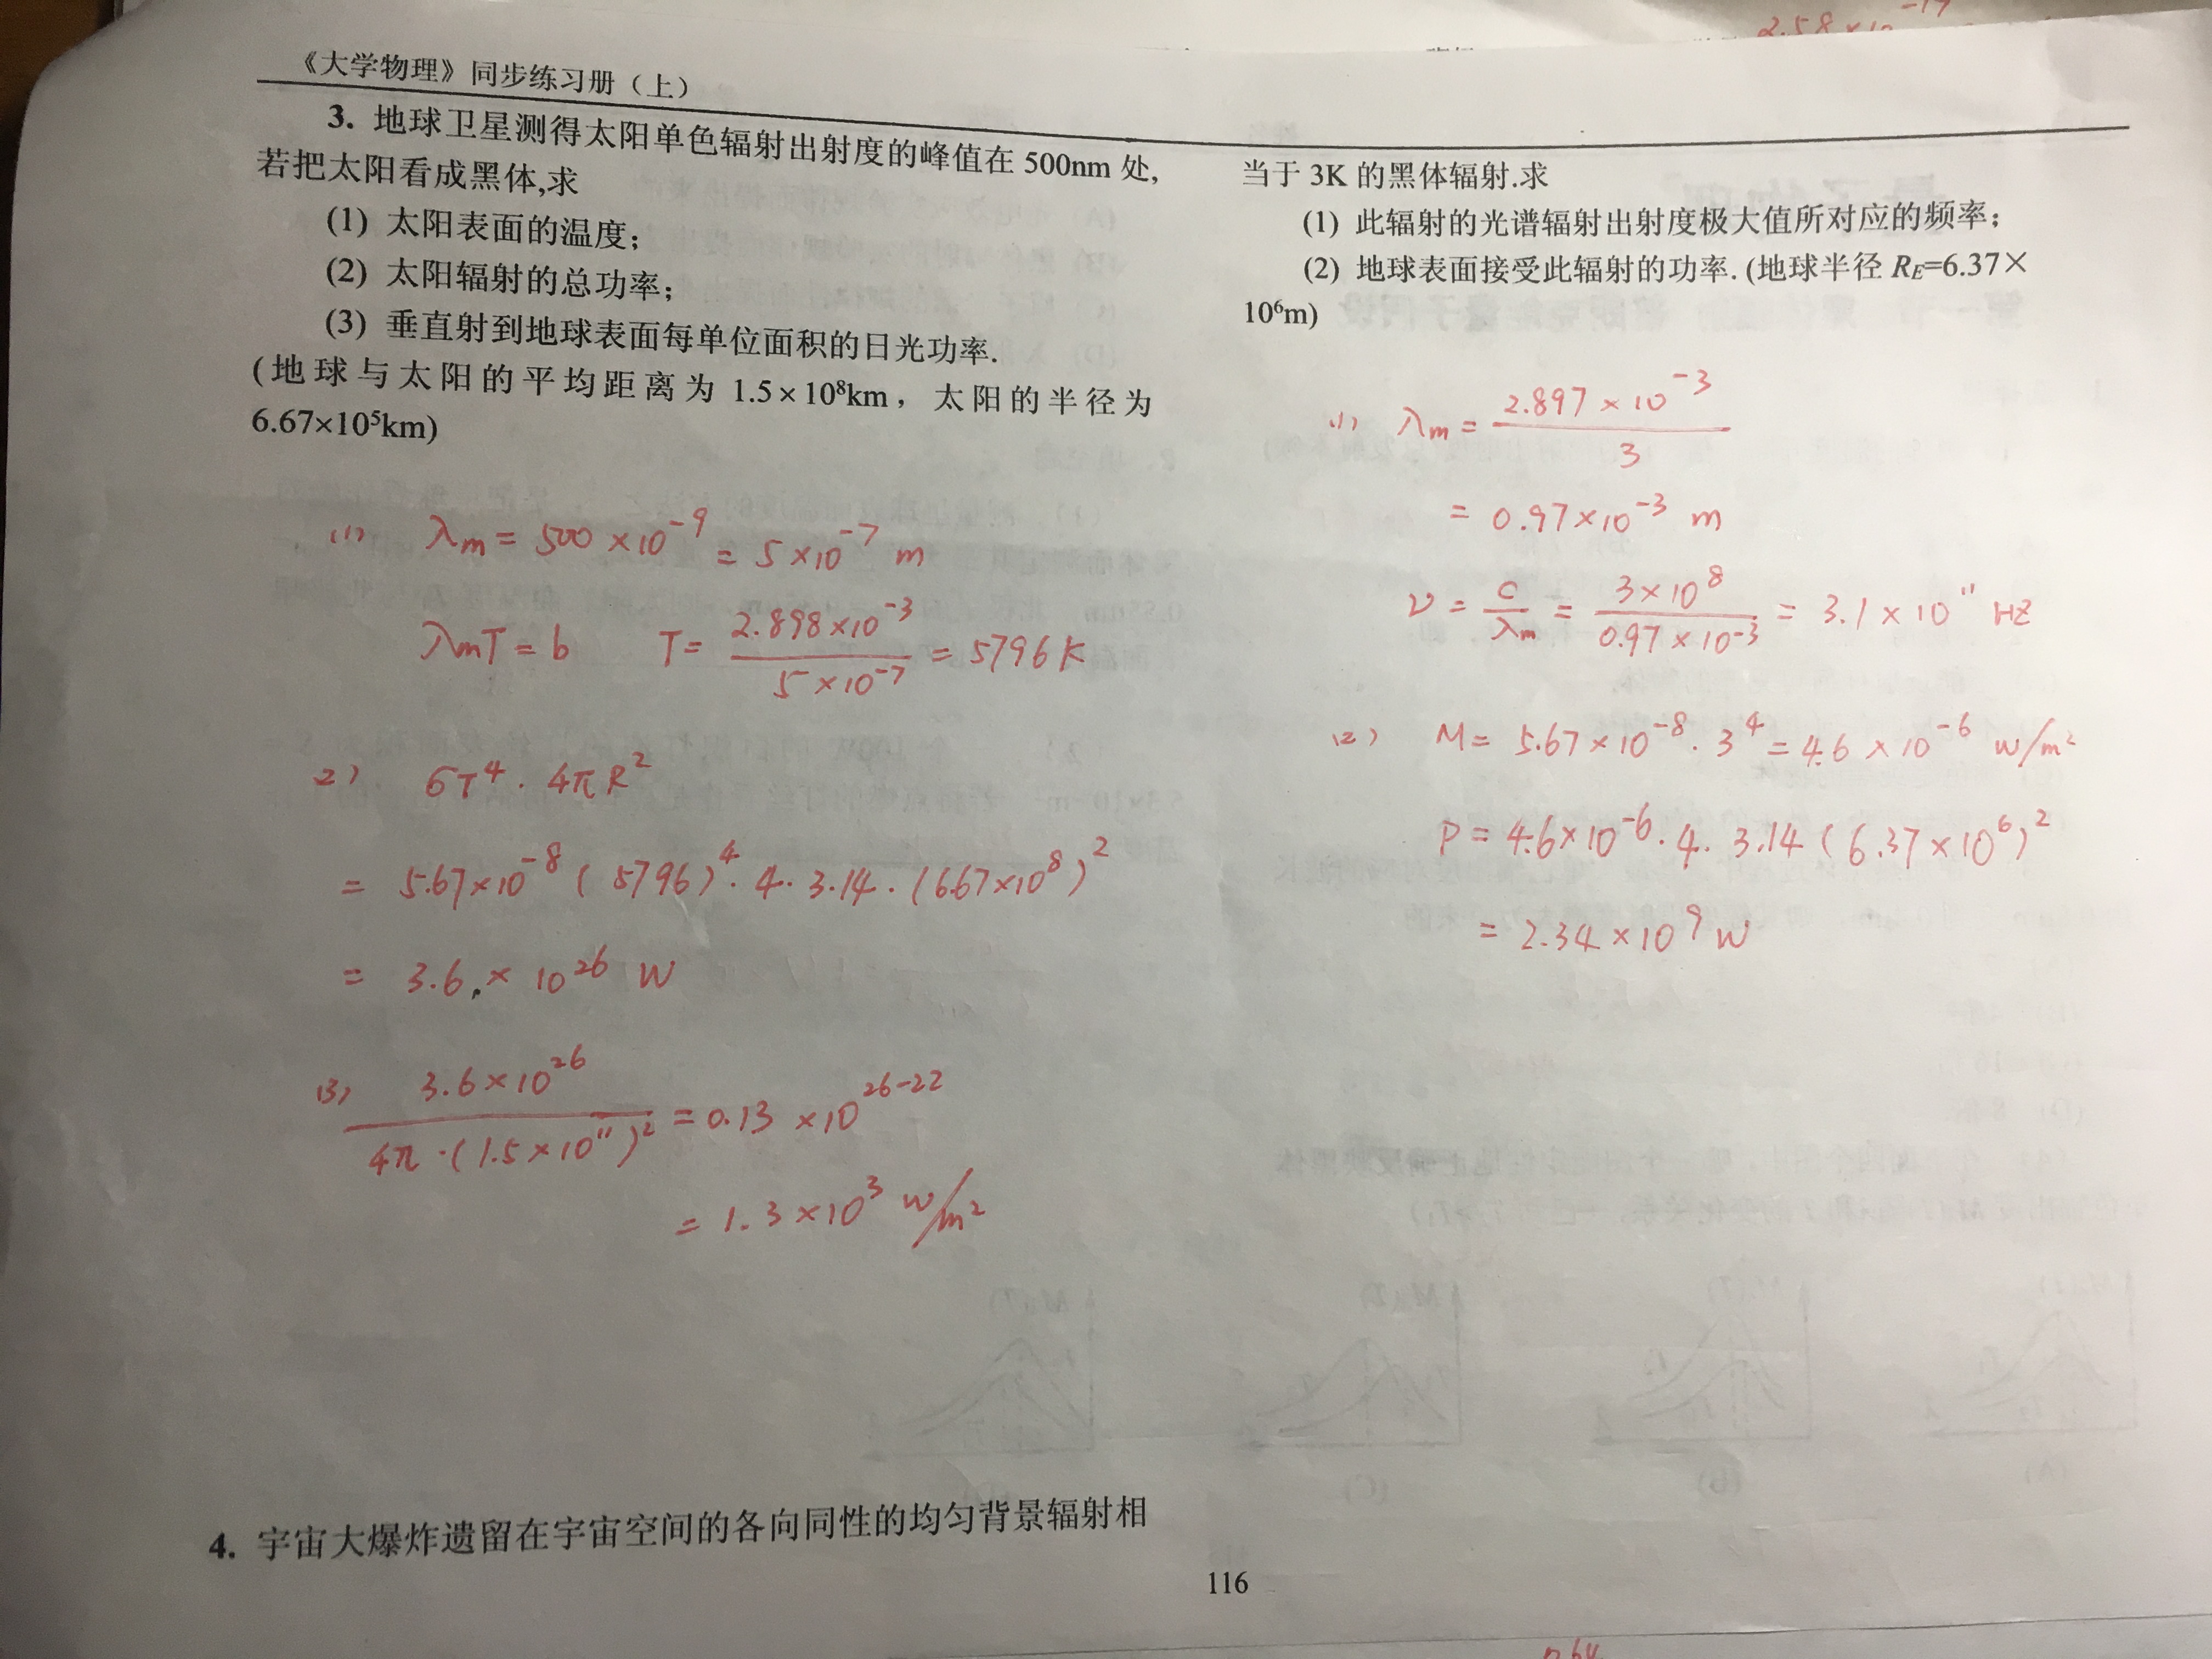 2.58×10⁻¹⁷
《大学物理》同步练习册（上）
3. 地球卫星测得太阳单色辐射出射度的峰值在 500nm 处,
若把太阳看成黑体,求
(1) 太阳表面的温度；
(2) 太阳辐射的总功率；
(3) 垂直射到地球表面每单位面积的日光功率.
(地球与太阳的平均距离为 1.5×10⁸km，太阳的半径为
6.67×10⁵km)
(1) λm = 500×10⁻⁹ = 5×10⁻⁷ m
λmT = b T = 2.898×10⁻³ / 5×10⁻⁷ = 5796K
2) σT⁴ · 4πR²
= 5.67×10⁻⁸ (5796)⁴ · 4 · 3.14 · (6.67×10⁸)²
= 3.6 × 10²⁶ W
(3) 3.6×10²⁶ / 4π·(1.5×10¹¹)² = 0.13 ×10²⁶⁻²²
= 1.3×10³ W/m²
4. 宇宙大爆炸遗留在宇宙空间的各向同性的均匀背景辐射相
当于 3K 的黑体辐射.求
(1) 此辐射的光谱辐射出射度极大值所对应的频率；
(2) 地球表面接受此辐射的功率. (地球半径 R_E=6.37×
10⁶m)
(1) λm = 2.897×10⁻³ / 3
= 0.97×10⁻³ m
ν = c/λm = 3×10⁸ / 0.97×10⁻³ = 3.1×10¹¹ HZ
(2) M = 5.67×10⁻⁸ · 3⁴ = 4.6×10⁻⁶ W/m²
P = 4.6×10⁻⁶ · 4 · 3.14 (6.37×10⁶)²
= 2.34×10⁹ W
116